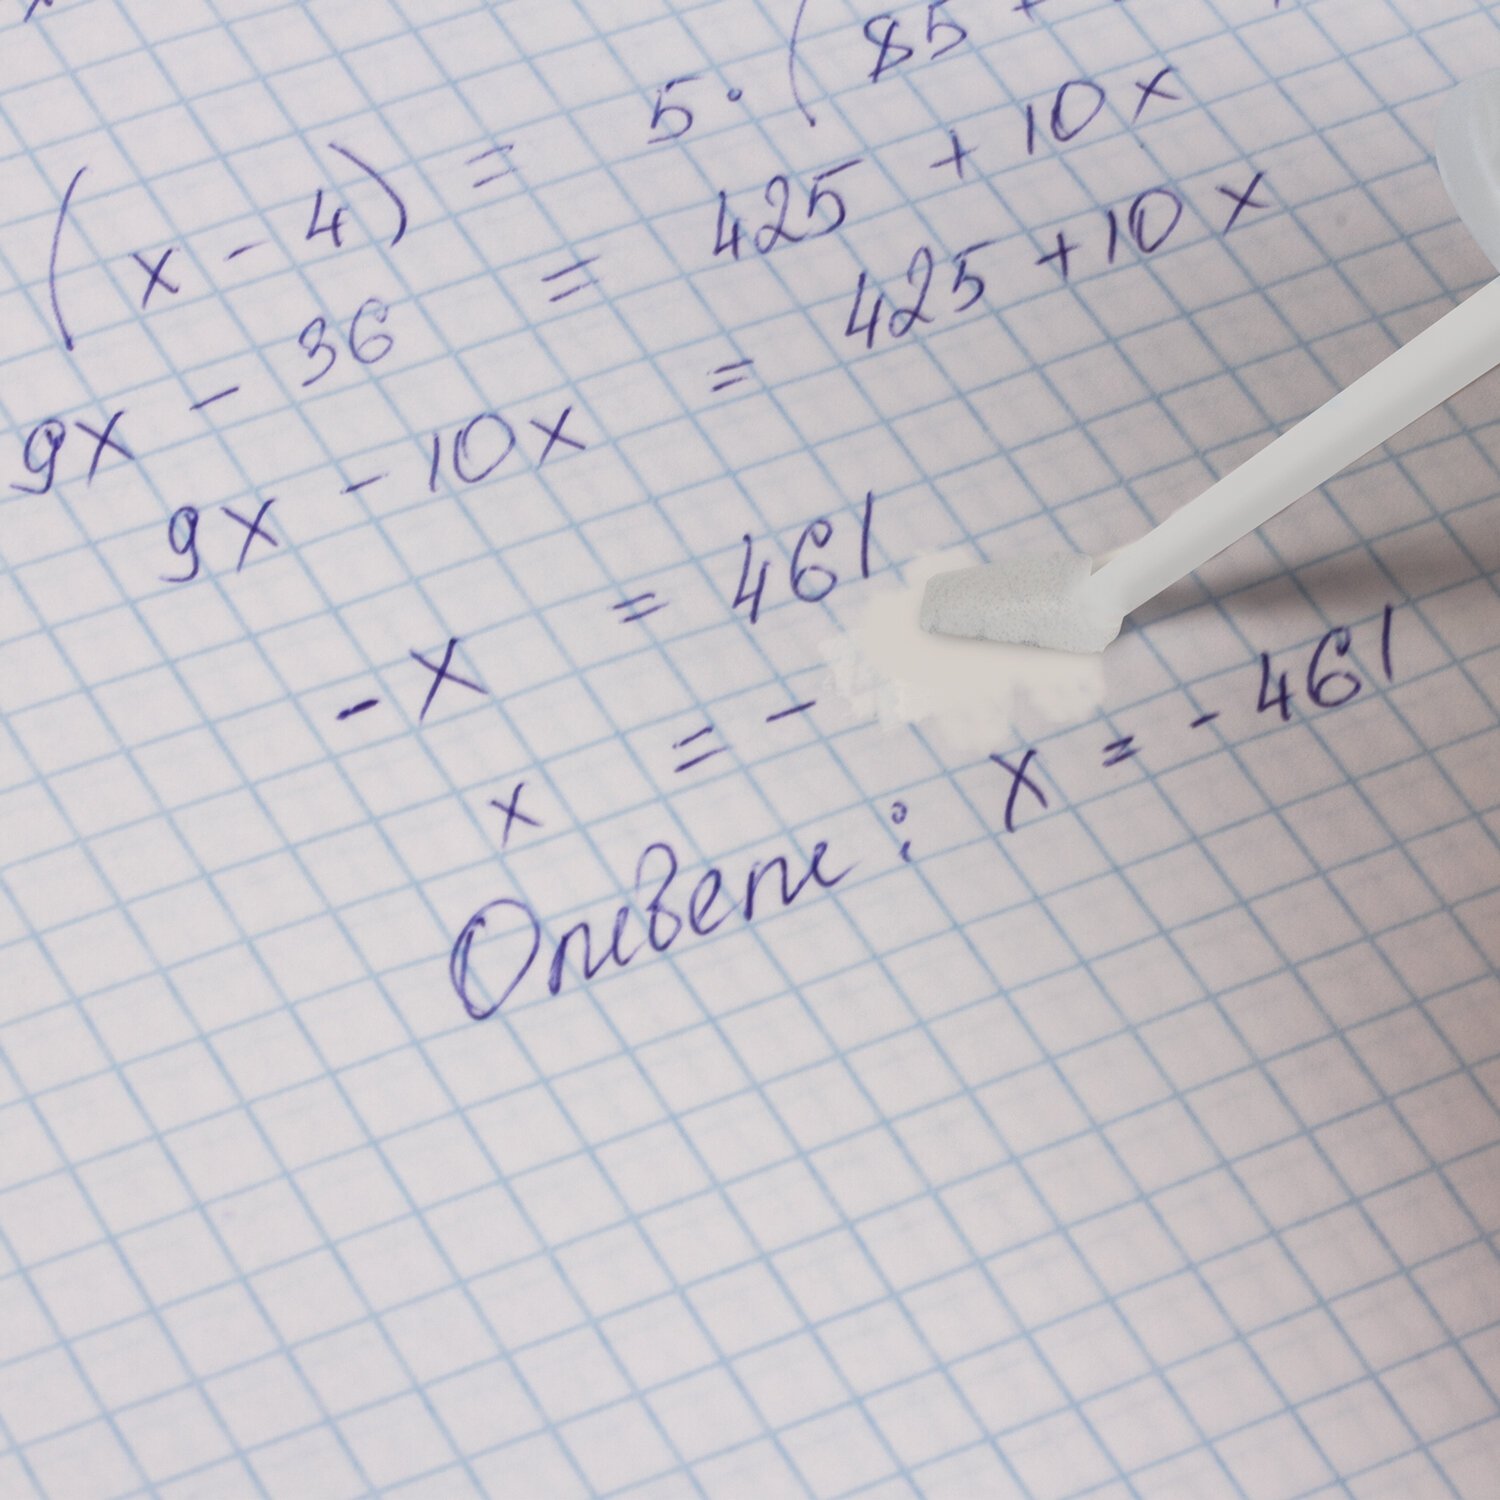 (x - 4) = 5 · (85 +
9x - 36 = 425 + 10x
9x - 10x = 425 + 10x
- x = 461
x = -
Ответ: x = - 461